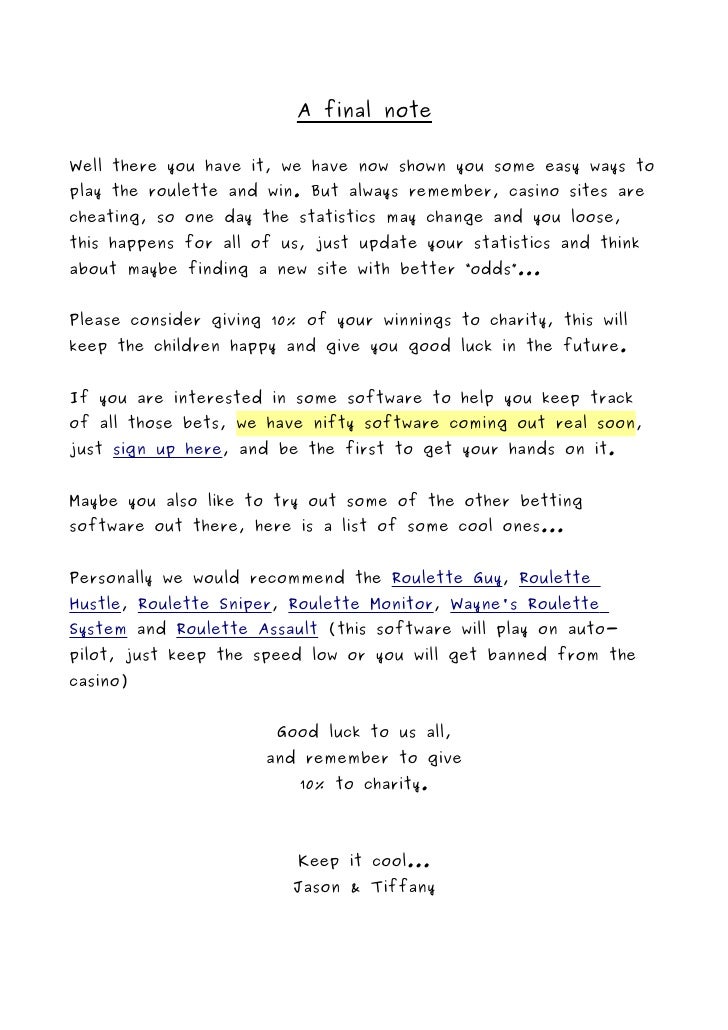 A final note
Well there you have it, we have now shown you some easy ways to
play the roulette and win. But always remember, casino sites are
cheating, so one day the statistics may change and you loose,
this happens for all of us, just update your statistics and think
about maybe finding a new site with better "odds"...
Please consider giving 10% of your winnings to charity, this will
keep the children happy and give you good luck in the future.
If you are interested in some software to help you keep track
of all those bets, we have nifty software coming out real soon,
just sign up here, and be the first to get your hands on it.
Maybe you also like to try out some of the other betting
software out there, here is a list of some cool ones...
Personally we would recommend the Roulette Guy, Roulette
Hustle, Roulette Sniper, Roulette Monitor, Wayne's Roulette
System and Roulette Assault (this software will play on auto-
pilot, just keep the speed low or you will get banned from the
casino)
Good luck to us all,
and remember to give
10% to charity.
Keep it cool...
Jason & Tiffany